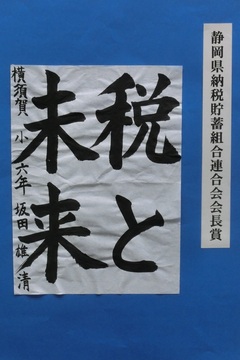 静岡県納税貯蓄組合連合会会長賞
税と
未来
横須賀 小 六年 坂田 雄清